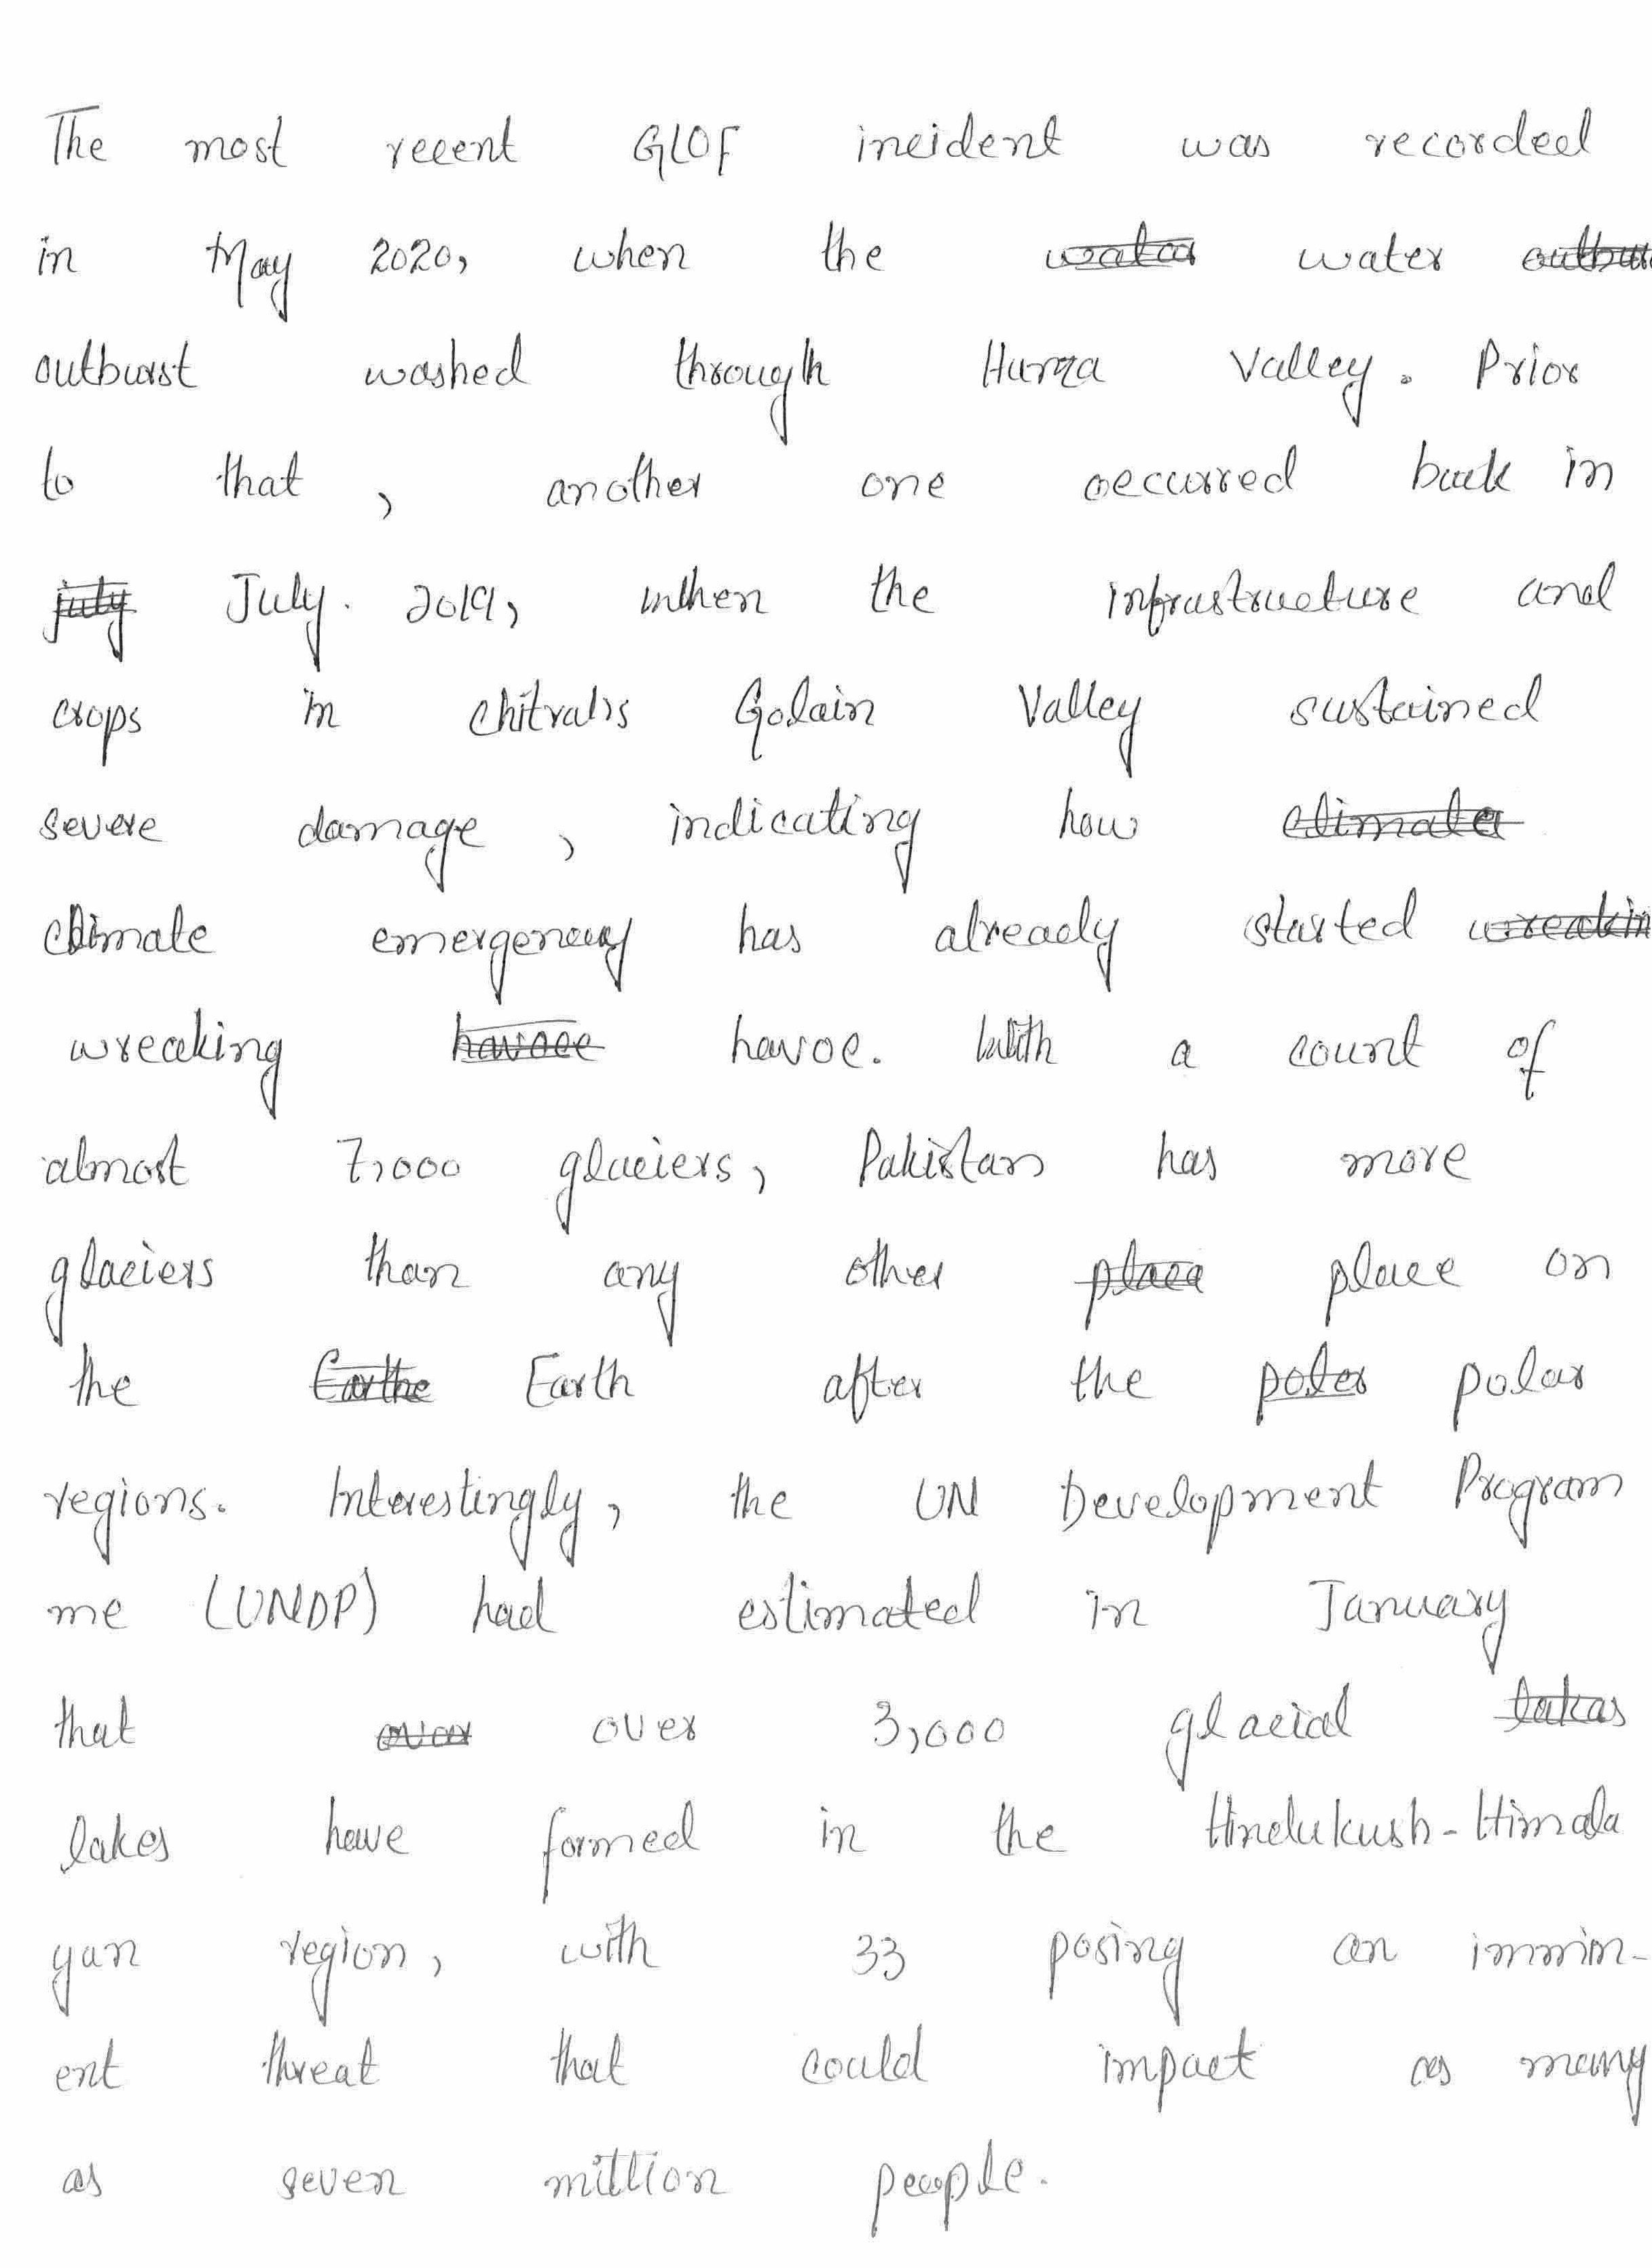 The most recent GLOF incident was recorded
in May 2020, when the water
outburst washed through Hunza Valley. Prior
to that, another one occurred back in
July. 2019, when the infrastructure and
crops in chitral's Golain Valley sustained
severe damage, indicating how
climate emergency has already started
wreaking havoc. With a count of
almost 7,000 glaciers, Pakistan has more
glaciers than any other place on
the Earth after the polar
regions. Interestingly, the UN Development Program
me (UNDP) had estimated in January
that over 3,000 glacial
lakes have formed in the Hindukush-Himala
yan region, with 33 posing an immin-
ent threat that could impact as many
as seven million people.